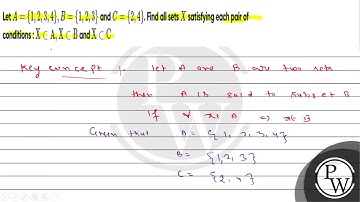 Let A = {1, 2, 3, 4}, B = {1, 2, 3} and C = {2, 4}. Find all sets X satisfying each pair of
conditions : X ⊂ A, X ⊂ B and X ⊂ C
Key concept ! let A and B are two sets
then A is said to subset B
if ∀ x ∈ A ⇒ x ∈ B
Given that A = {1, 2, 3, 4}
B = {1, 2, 3}
C = {2, 4}
P
W
P
W